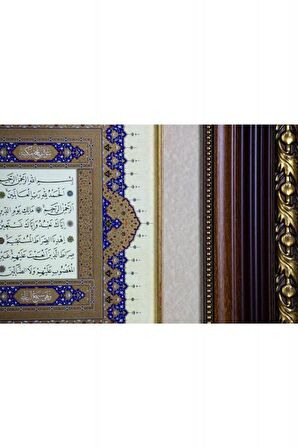 بِسْمِ اللّٰهِ الرَّحْمٰنِ الرَّحِيمِ
اَلْحَمْدُ لِلّٰهِ رَبِّ الْعَالَمِينَ
اَلرَّحْمٰنِ الرَّحِيمِ مَالِكِ يَوْمِ الدِّينِ
اِيَّاكَ نَعْبُدُ وَاِيَّاكَ نَسْتَعِينُ
اِهْدِنَا الصِّرَاطَ الْمُسْتَقِيمَ
صِرَاطَ الَّذِينَ اَنْعَمْتَ عَلَيْهِمْ غَيْرِ
الْمَغْضُوبِ عَلَيْهِمْ وَلَا الضَّالِّينَ